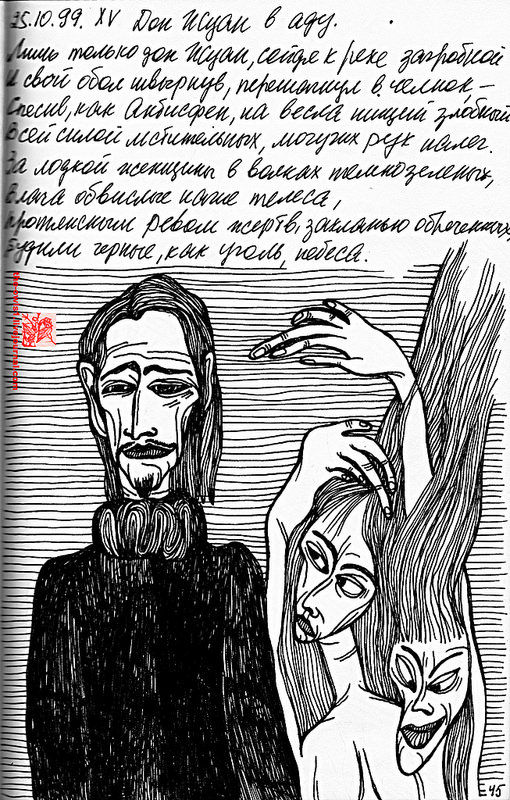 25.10.99. XV Дон Жуан в аду.
Лишь только дон Жуан, сойдя к реке загробной
И свой обол швырнув, перешагнул в челнок, —
Спесив, как Антисфен, на весла нищий злобный
Всей силой мстительных, могучих рук налег.
За лодкой женщины в волнах темнозеленых,
Влача обвислые нагие телеса,
Протяжным ревом жертв, закланью обреченных,
Будили черные, как уголь, небеса.
E45